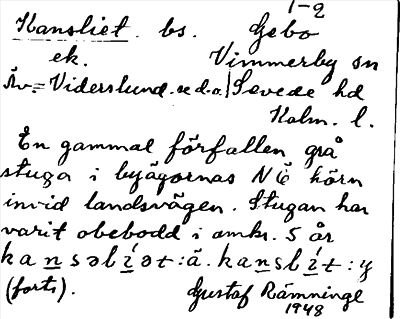 1-2
Kansliet. bs. Gebo
ek. Vimmerby sn
Äv.= Viderslund. se d.o. / Sevede hd
Kalm. l.
En gammal förfallen grå
stuga i byägornas NÖ hörn
invid landsvägen. Stugan har
varit obebodd i omkr. 5 år
kansəlíət: ä. kanslít: y
(forts). Gustaf Rämninge
1948